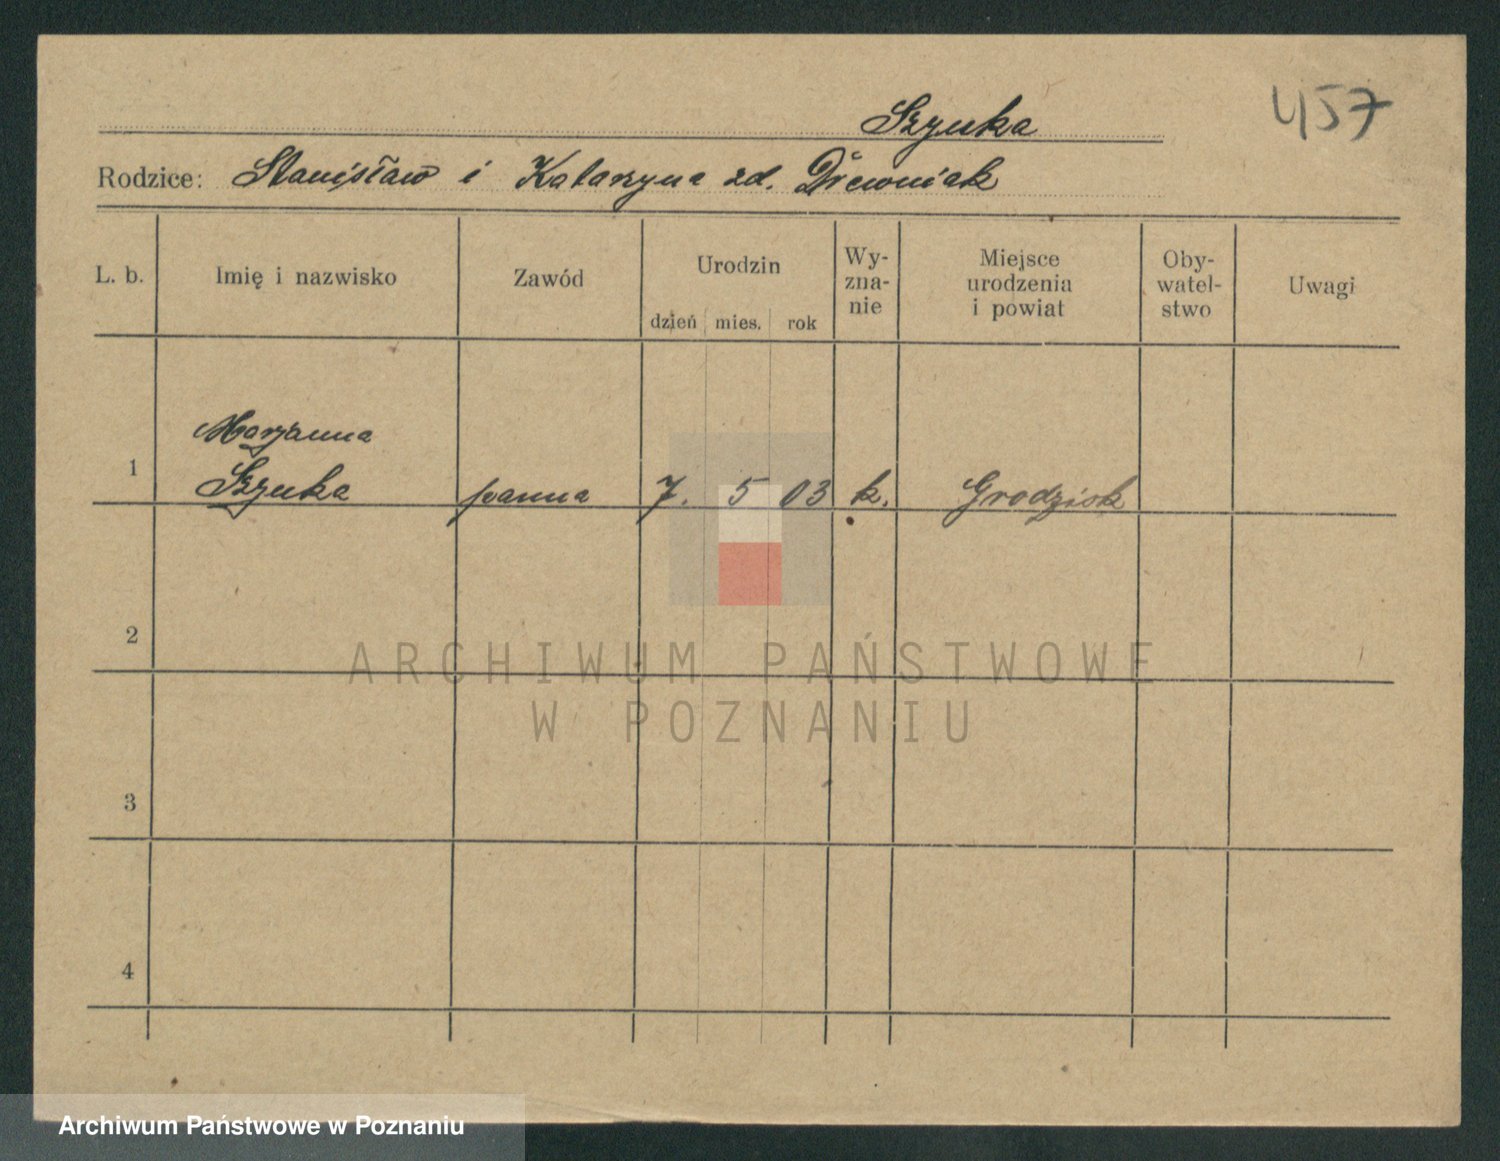 457
Szyuka
Rodzice: Stanisław i Katarzyna zd. Drewniak
L. b.
Imię i nazwisko
Zawód
Urodzin
dzień mies. rok
Wy-
zna-
nie
Miejsce
urodzenia
i powiat
Oby-
watel-
stwo
Uwagi
Marjanna
1 Szyuka panna 7. 5 03 k. Grodzisk
2
3
4
ARCHIWUM PAŃSTWOWE
W POZNANIU
Archiwum Państwowe w Poznaniu